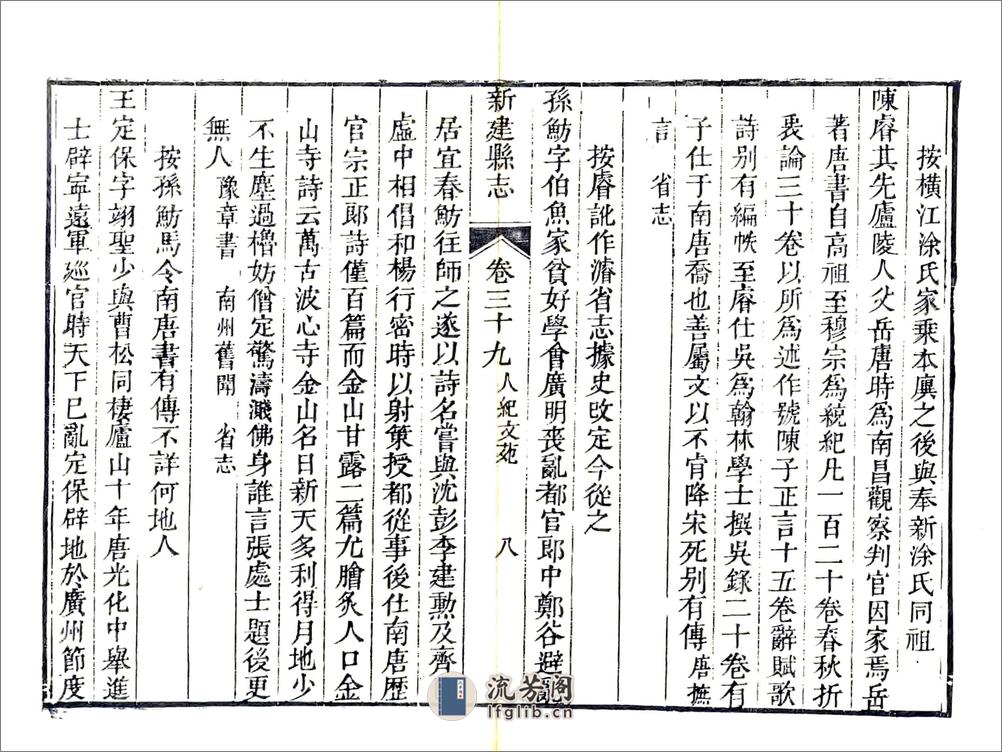 按橫江涂氏家乘本廙之後與奉新涂氏同祖
陳睿其先廬陵人父岳唐時爲南昌觀察判官因家焉岳
著唐書自高祖至穆宗爲統紀凡一百二十卷春秋折
衷論三十卷以所爲述作號陳子正言十五卷辭賦歌
詩别有編帙至睿仕吳爲翰林學士撰吳錄二十卷有
子仕于南唐喬也善屬文以不肯降宋死别有傳 唐摭
言 省志
按睿訛作濬省志據史攺定今從之
孫魴字伯魚家貧好學會廣明喪亂都官郎中鄭谷避亂
新建縣志 卷三十九 人紀文苑 八
居宜春魴往師之遂以詩名嘗與沈彭李建勳及齊
虛中相倡和楊行密時以射策授都從事後仕南唐歷
官宗正郎詩僅百篇而金山甘露二篇尤膾炙人口金
山寺詩云萬古波心寺金山名日新天多利得月地少
不生塵過櫓妨僧定驚濤濺佛身誰言張處士題後更
無人 豫章書 南州舊聞 省志
按孫魴馬令南唐書有傳不詳何地人
王定保字翊聖少與曹松同棲廬山十年唐光化中舉進
士辟寧遠軍廵官時天下巳亂定保辟地於廣州節度
流芳閣
lfglib.cn